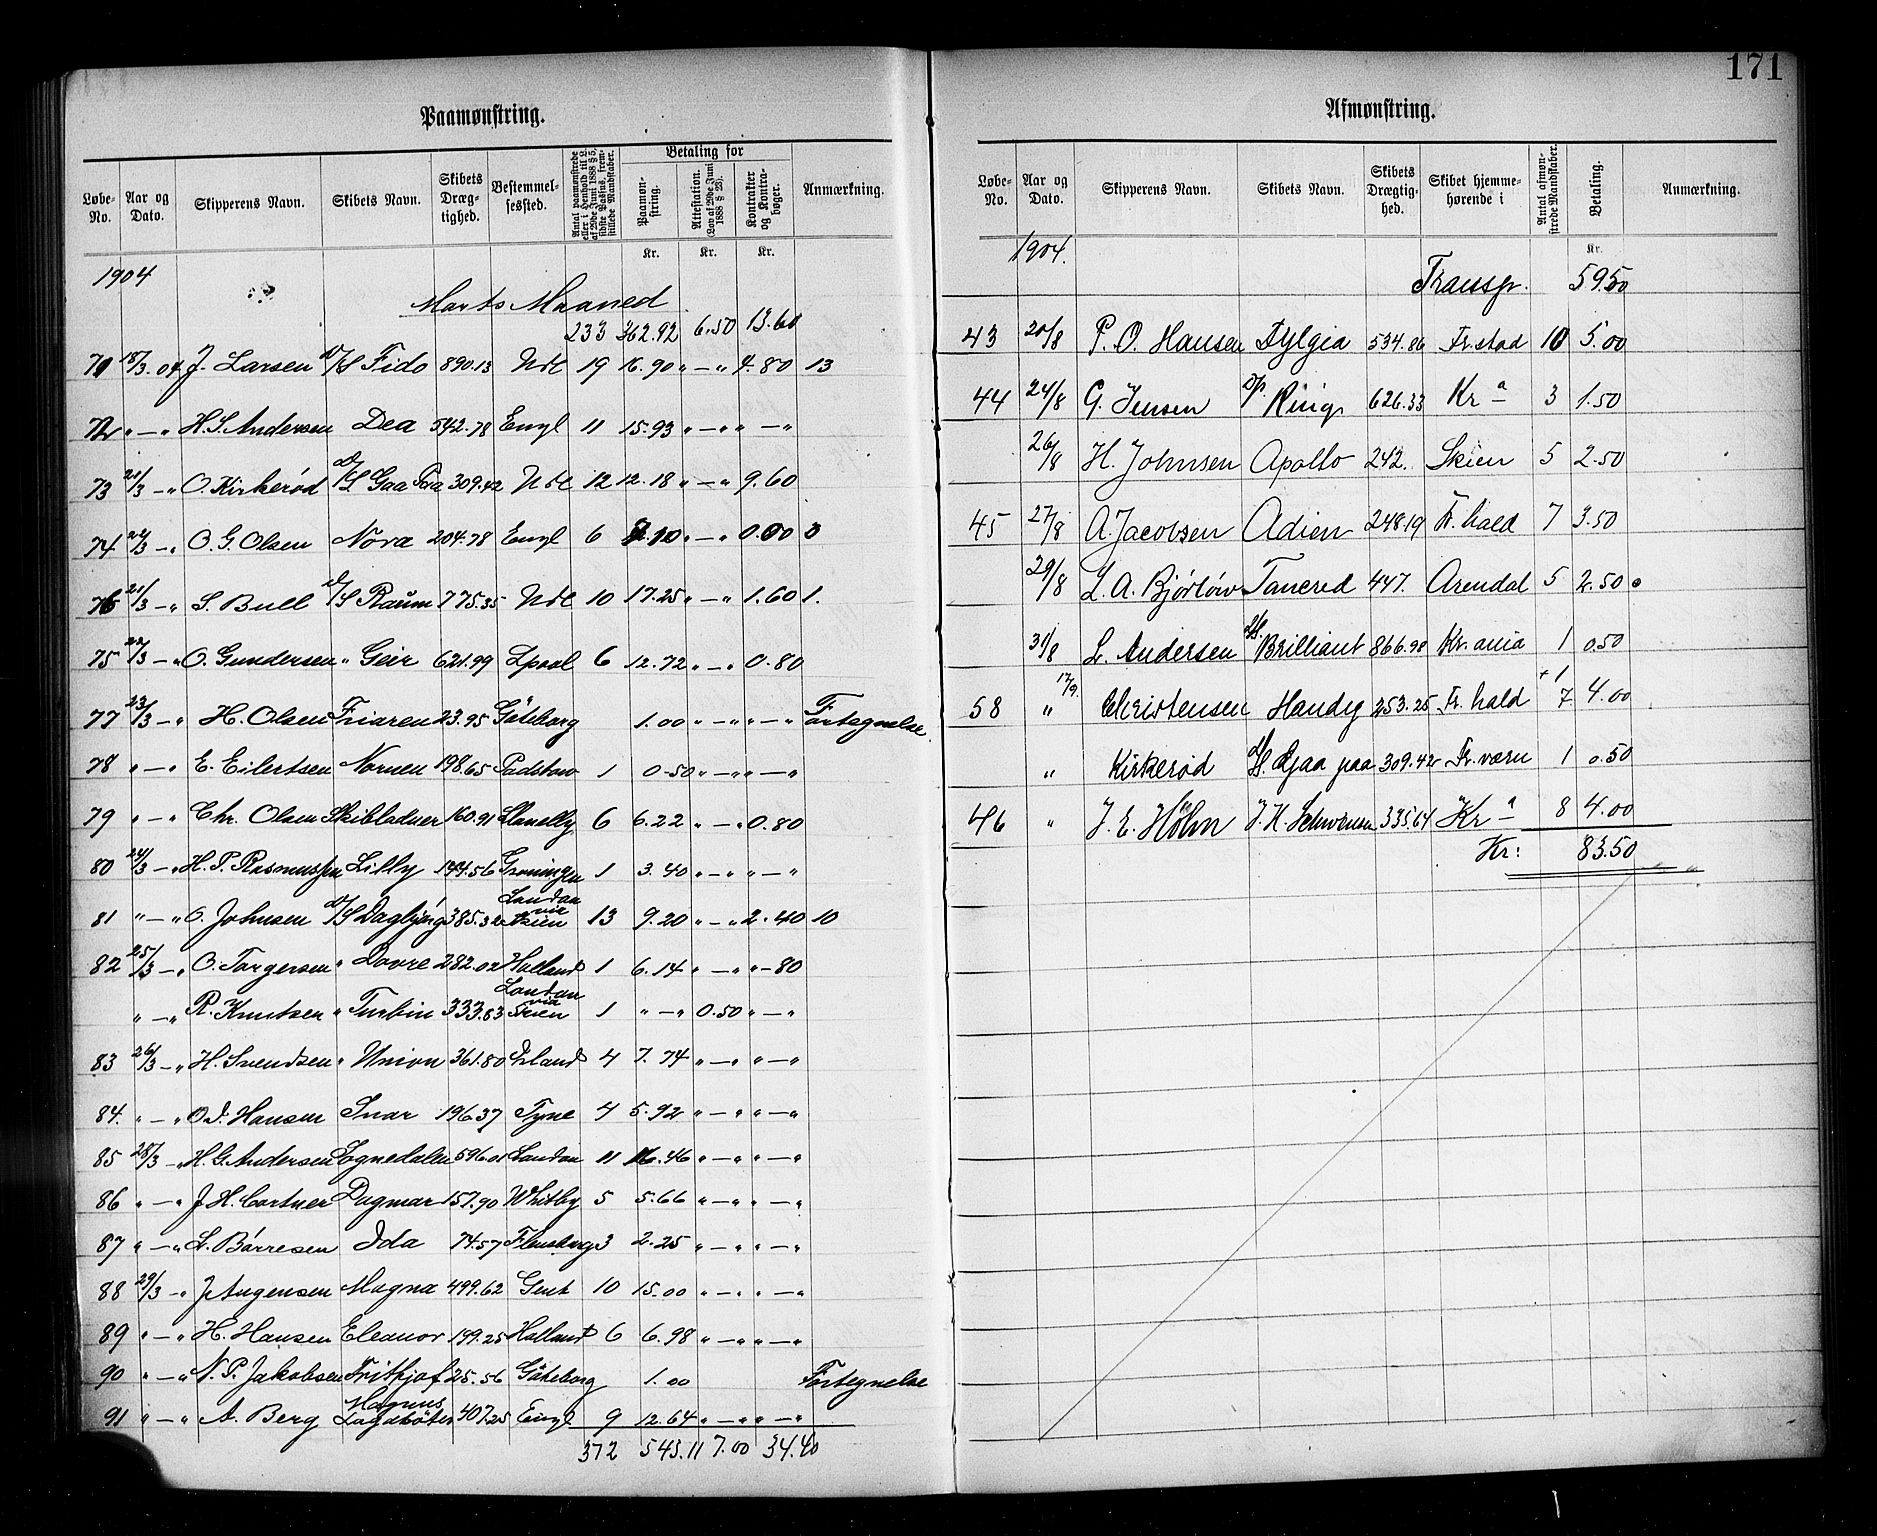 171
Paamønstring.
Løbe-No. Aar og Dato. Skipperens Navn. Skibets Navn. Skibets Dræg-tighed. Bestemmel-sessted. Antal paamønstrede eller i Henhold til L. af 29de Juni 1888 § 5, sidste Passus, frem-stillede Mandskaber. Betaling for Paamøn-string. Attestation. (Lov af 29de Juni 1888 § 23). Kontrakter og Kontra-bøger. Anmærkning.
Kr. Kr. Kr.
1904
Marts Maaned
233 362.92 6.50 13.60
71 18/3 04 J. Larsen D/S Fido 890.13 Ndl 19 16.90 " — " 4.80 13
72 " — " H. S. Andersen Dea 542.78 Engl 11 15.93 " — " " — "
73 21/3 — " O. Kirkerød D/S Gaa Paa 309.42 Ndl 12 12.18 " — " 9.60
74 21/3 — " O. G. Olsen Nora 204.78 Engl 6 8.10 " — " 0.00 0
76 21/3 — " S. Bull D/S Raum 775.35 Ndl 10 17.25 " — " 1.60 1.
75 22/3 — " O. Gundersen " Geir 621.99 Lpool 6 12.72 " — " 0.80
77 23/3 — " H. Olsen Friaren 23.95 Göteborg 1.00 " — " " — " Fortegnelse
78 " — " E. Eilertsen Nornen 198.65 Padstow 1 0.50 " — " " — "
79 " — " Chr. Olsen Skibladner 160.91 Llanelly 6 6.22 " — " 0.80
80 24/3 — " H. P. Rasmussen Lilly 144.56 Groningen 1 3.40 " — " " — "
81 " — " O. Johnsen D/S Dagbjørg 385.32 London via Skien 13 9.20 " — " 2.40 10
82 25/3 — " O. Torgersen " Dovre 282.02 Holland 1 6.14 " — " " — 80
" — " R. Knutsen " Turbin 333.83 London via Skien 1 " — " 0.50 " — "
83 26/3 — " H. Svendsen " Union 361.80 Island 4 7.74 " — " " — "
84. " — " O. J. Hansen Snar 196.37 Tyne 4 5.92 " — " " — "
85 28/3 — " H. G. Andersen Sognedalen 596.01 London 11 16.46 " — " " — "
86 " — " J. H. Cortner Dagmar 157.90 Whitby 5 5.66 " — " " — "
87 " — " L. Børresen Ida 74.57 Flensborg 3 2.25 " — " " — "
88 29/3 — " J Augensen Magna 499.62 Gent 10 15.00 " — " " — "
89 " — " H. Hansen Eleanor 199.25 Holland 6 6.98 " — " " — "
90 " — " N. P. Jakobsen Frithjof 25.56 Göteborg 1.00 Fortegnelse
91 " — " A. Berg Magnus Lagabøter 407.25 Engl 9 12.64 " — " " — "
372 543.11 7.00 34.40
Afmønstring.
Løbe-No. Aar og Dato. Skipperens Navn. Skibets Navn. Skibets Drægtig-hed. Skibet hjemme-hørende i Antal afmøn-strede Mandskaber. Betaling. Anmærkning.
Kr.
1904.
Transp. 59.50
43 20/8 P. O. Hansen Fylgia 534.86 Fr.stad 10 5.00
44 24/8 G. Jensen D/S Ring 626.33 Kr a 3 1.50
26/8 H. Johnsen Apollo 242. Skien 5 2.50
45 27/8 A. Jacobsen Adien 248.19 Fr. hald 7 3.50
29/8 L. A. Bjørlöw Tancred 447. Arendal 5 2.50
31/8 L. Andersen D/S. Brilliant 866.98 Kr. ania 1 0.50
58 17/9. " Christensen Handy 253.25 Fr. hald + 1 7 4.00
" Kirkerød D/S. Gaa paa 309.42 Fr. værn 1 0.50
46 " J. E. Holm J. H. Schwensen 335.64 Kr a 8 4.00
Kr: 83.50